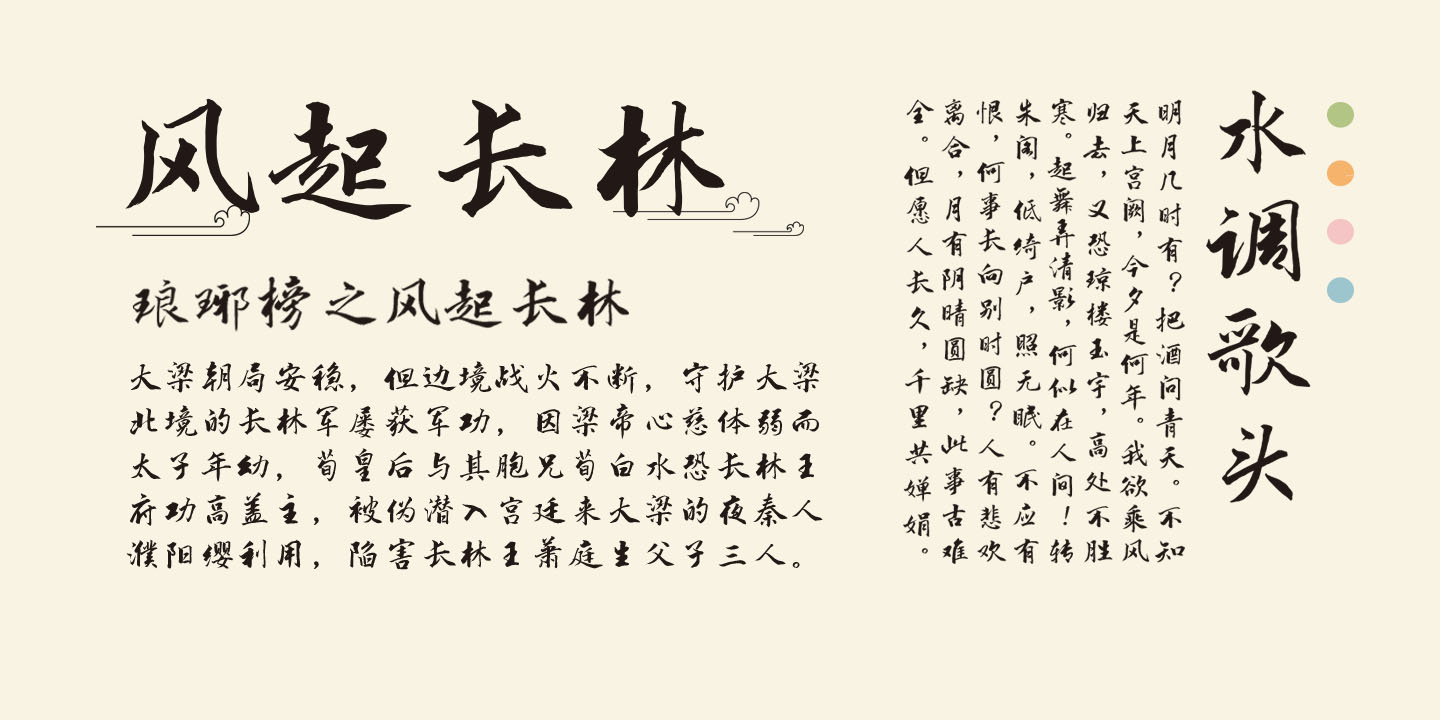 风起长林
琅琊榜之风起长林
大梁朝局安稳，但边境战火不断，守护大梁
北境的长林军屡获军功，因梁帝心慈体弱而
太子年幼，荀皇后与其胞兄荀白水恐长林王
府功高盖主，被伪潜入宫廷来大梁的夜秦人
濮阳缨利用，陷害长林王萧庭生父子三人。
水调歌头
明月几时有？把酒问青天。不知
天上宫阙，今夕是何年。我欲乘风
归去，又恐琼楼玉宇，高处不胜
寒。起舞弄清影，何似在人间！转
朱阁，低绮户，照无眠。不应有
恨，何事长向别时圆？人有悲欢
离合，月有阴晴圆缺，此事古难
全。但愿人长久，千里共婵娟。